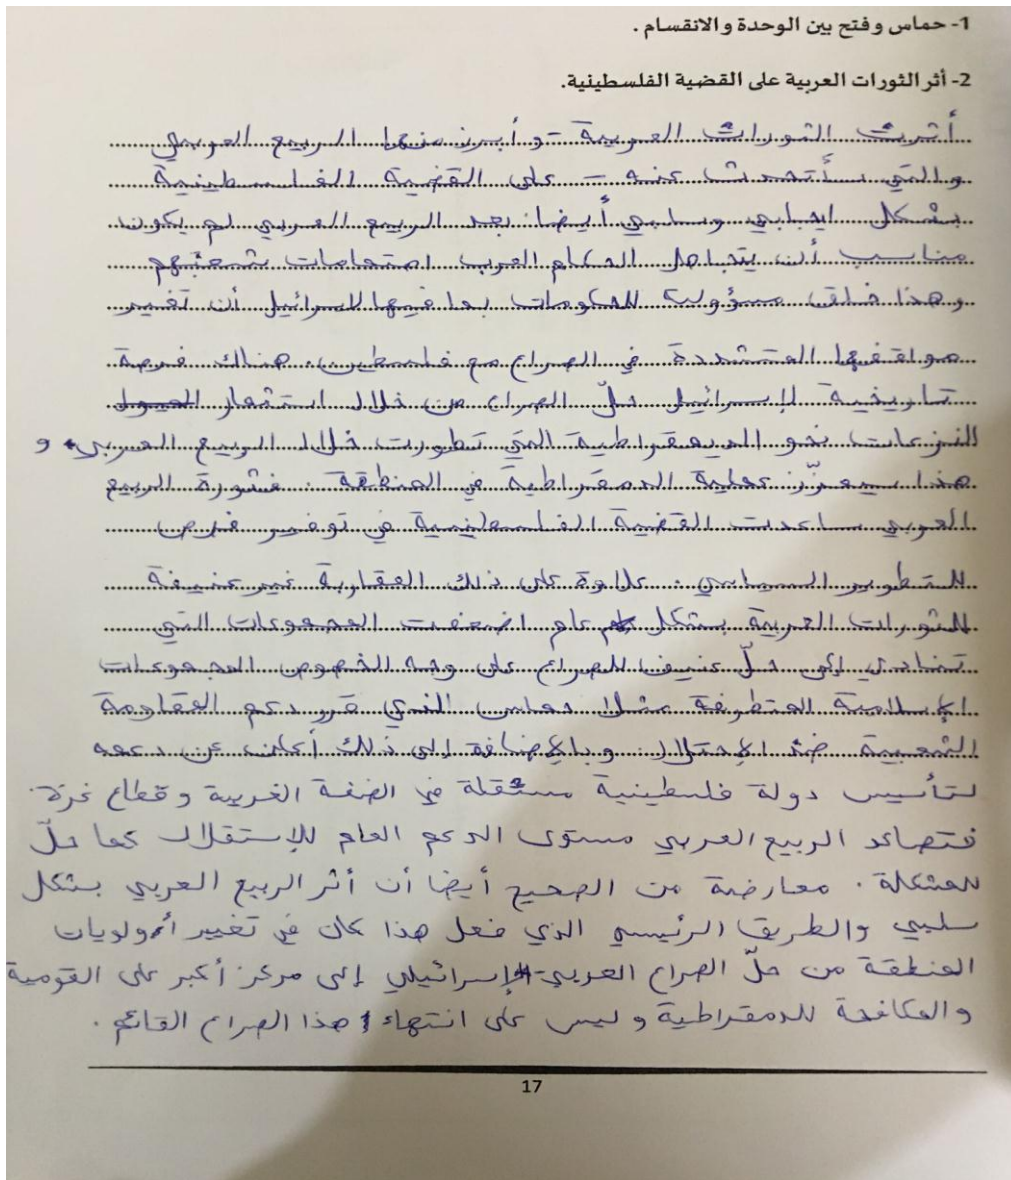 1- حماس وفتح بين الوحدة والانقسام .
2- أثر الثورات العربية على القضية الفلسطينية.
أثرت الثورات العربية - وأبرز منها الربيع العربي
والتي سأتحدث عنه - على القضية الفلسطينية
بشكل ايجابي وسلبي أيضا. بعد الربيع العربي لم يكون
مناسب أن يتجاهل الحكام العرب اهتمامات شعبهم
وهذا خلق مسؤولية للحكومات بما فيها لإسرائيل أن تغيير
مواقفها المتشددة في الصراع مع فلسطين. هناك فرصة
تاريخية لإسرائيل حلّ الصراع من خلال استثمار
النزعات نحو الديمقراطية التي تطورت خلال الربيع العربي. و
هذا سيعزّز عملية الدمقراطية في المنطقة. فثورة الربيع
العربي ساعدت القضية الفلسطينية في توفير فرص
للتطوير السياسي. علاوة على ذلك المقاربة غير عنيفة
للثورات العربية بشكل عام اضعفت المجموعات التي
تنادي إلى حلّ عنيف للصراع على وجه الخصوص المجموعات
الإسلامية المتطرفة مثلا حماس الذي قرر دعم المقاومة
الشعبية ضد الإحتلال. وبالإضافة إلى ذلك أعلن عن دعمه
لتأسيس دولة فلسطينية مستقلة في الضفة الغربية وقطاع غزة.
فتصاعد الربيع العربي مستوى الدعم العام للإستقلال كما حلّ
للمشكلة. معارضة من الصحيح أيضا أن أثر الربيع العربي بشكل
سلبي والطريق الرئيسي الذي فعل هذا كان في تغيير أولويات
المنطقة من حلّ الصراع العربي-الإسرائيلي إلى مركز أكبر على القومية
والمكافحة للدمقراطية وليس على انتهاء هذا الصراع القائم.
17